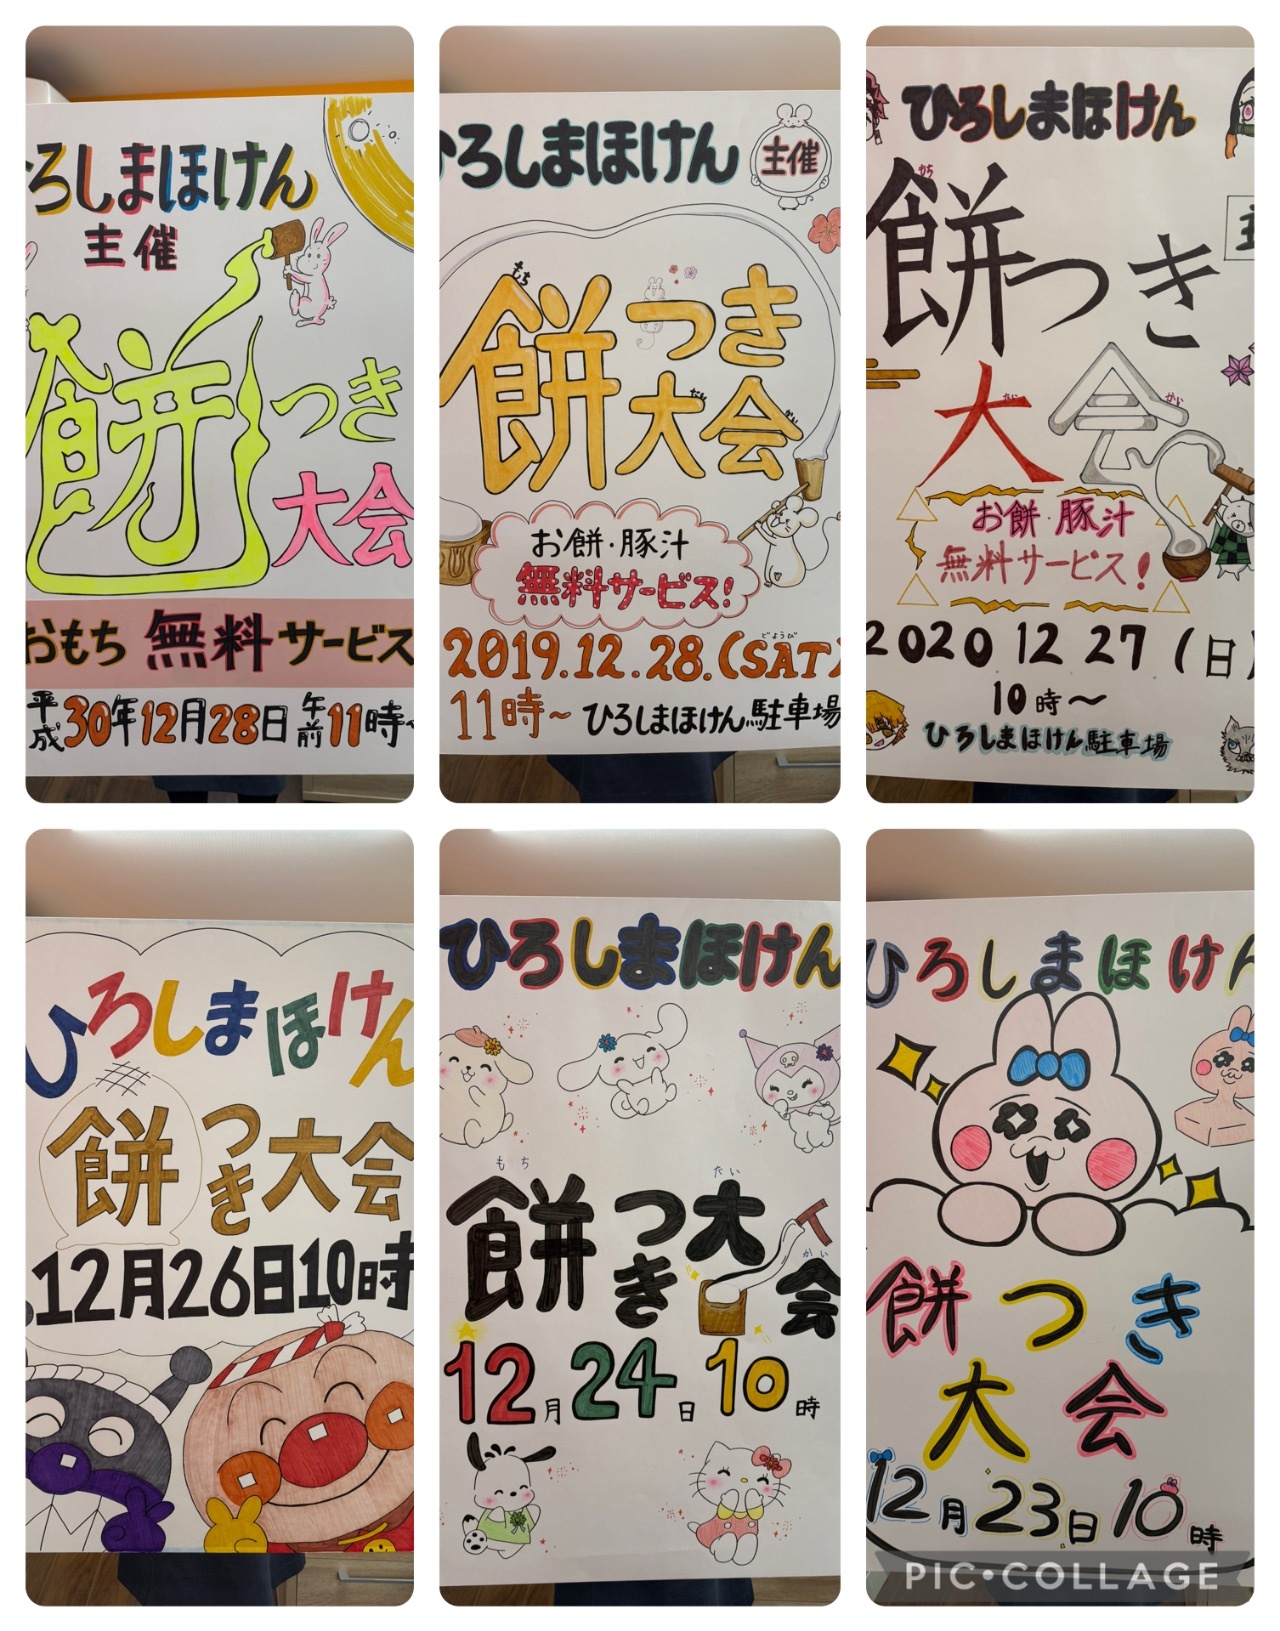 ひろしまほけん
主催
餅つき
大会
おもち 無料サービス
平成30年12月28日 午前11時~
ひろしまほけん
主催
もち
餅つき
大会
たい かい
お餅・豚汁
無料サービス!
どようび
2019.12.28.(SAT)
11時~ ひろしまほけん駐車場
ひろしまほけん
もち
餅つき
主
大会
たい かい
お餅・豚汁
無料サービス!
2020 12 27 (日)
10時~
ひろしまほけん駐車場
ひろしまほけん
餅つき大会
12月26日10時
ひろしまほけん
もち たい
餅つき大
かい
会
12月24日10時
ひろしまほけん
餅つき
大会
12月23日10時
PIC・COLLAGE